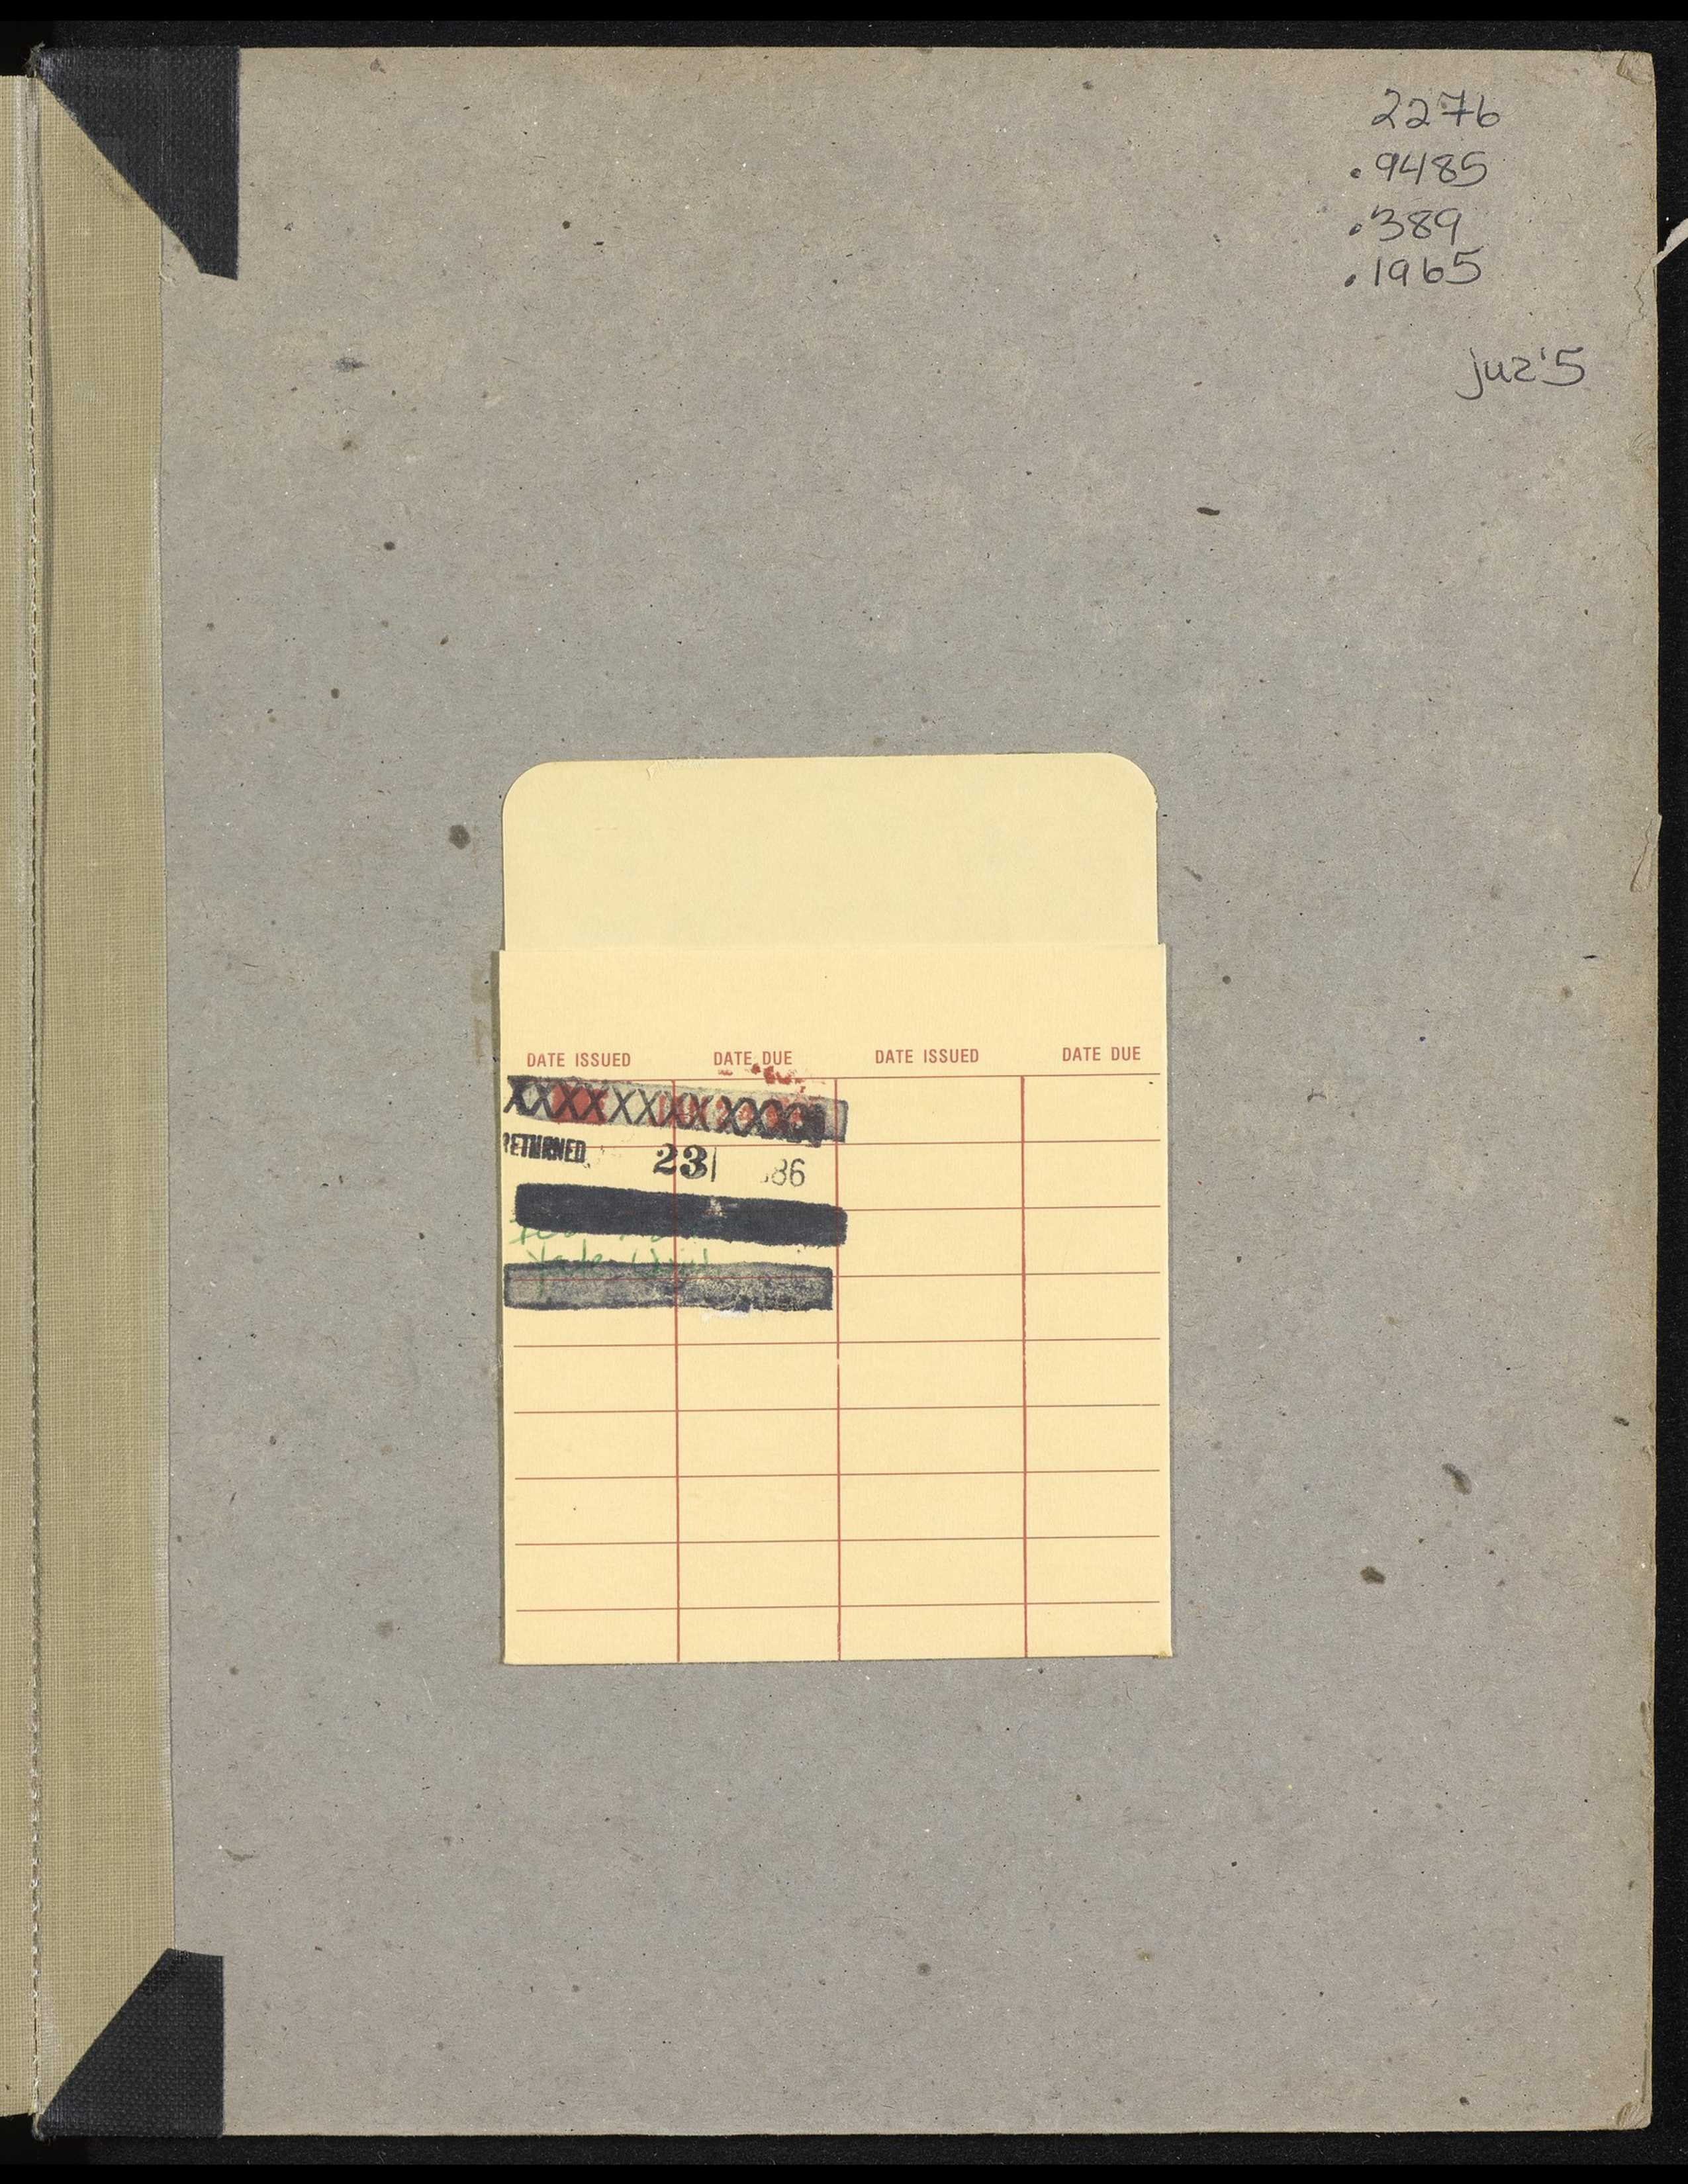 2276
.9485
.389
.1965
juz'5
DATE ISSUED DATE DUE DATE ISSUED DATE DUE
XXXXXXXXXXXX
RETURNED 23 86